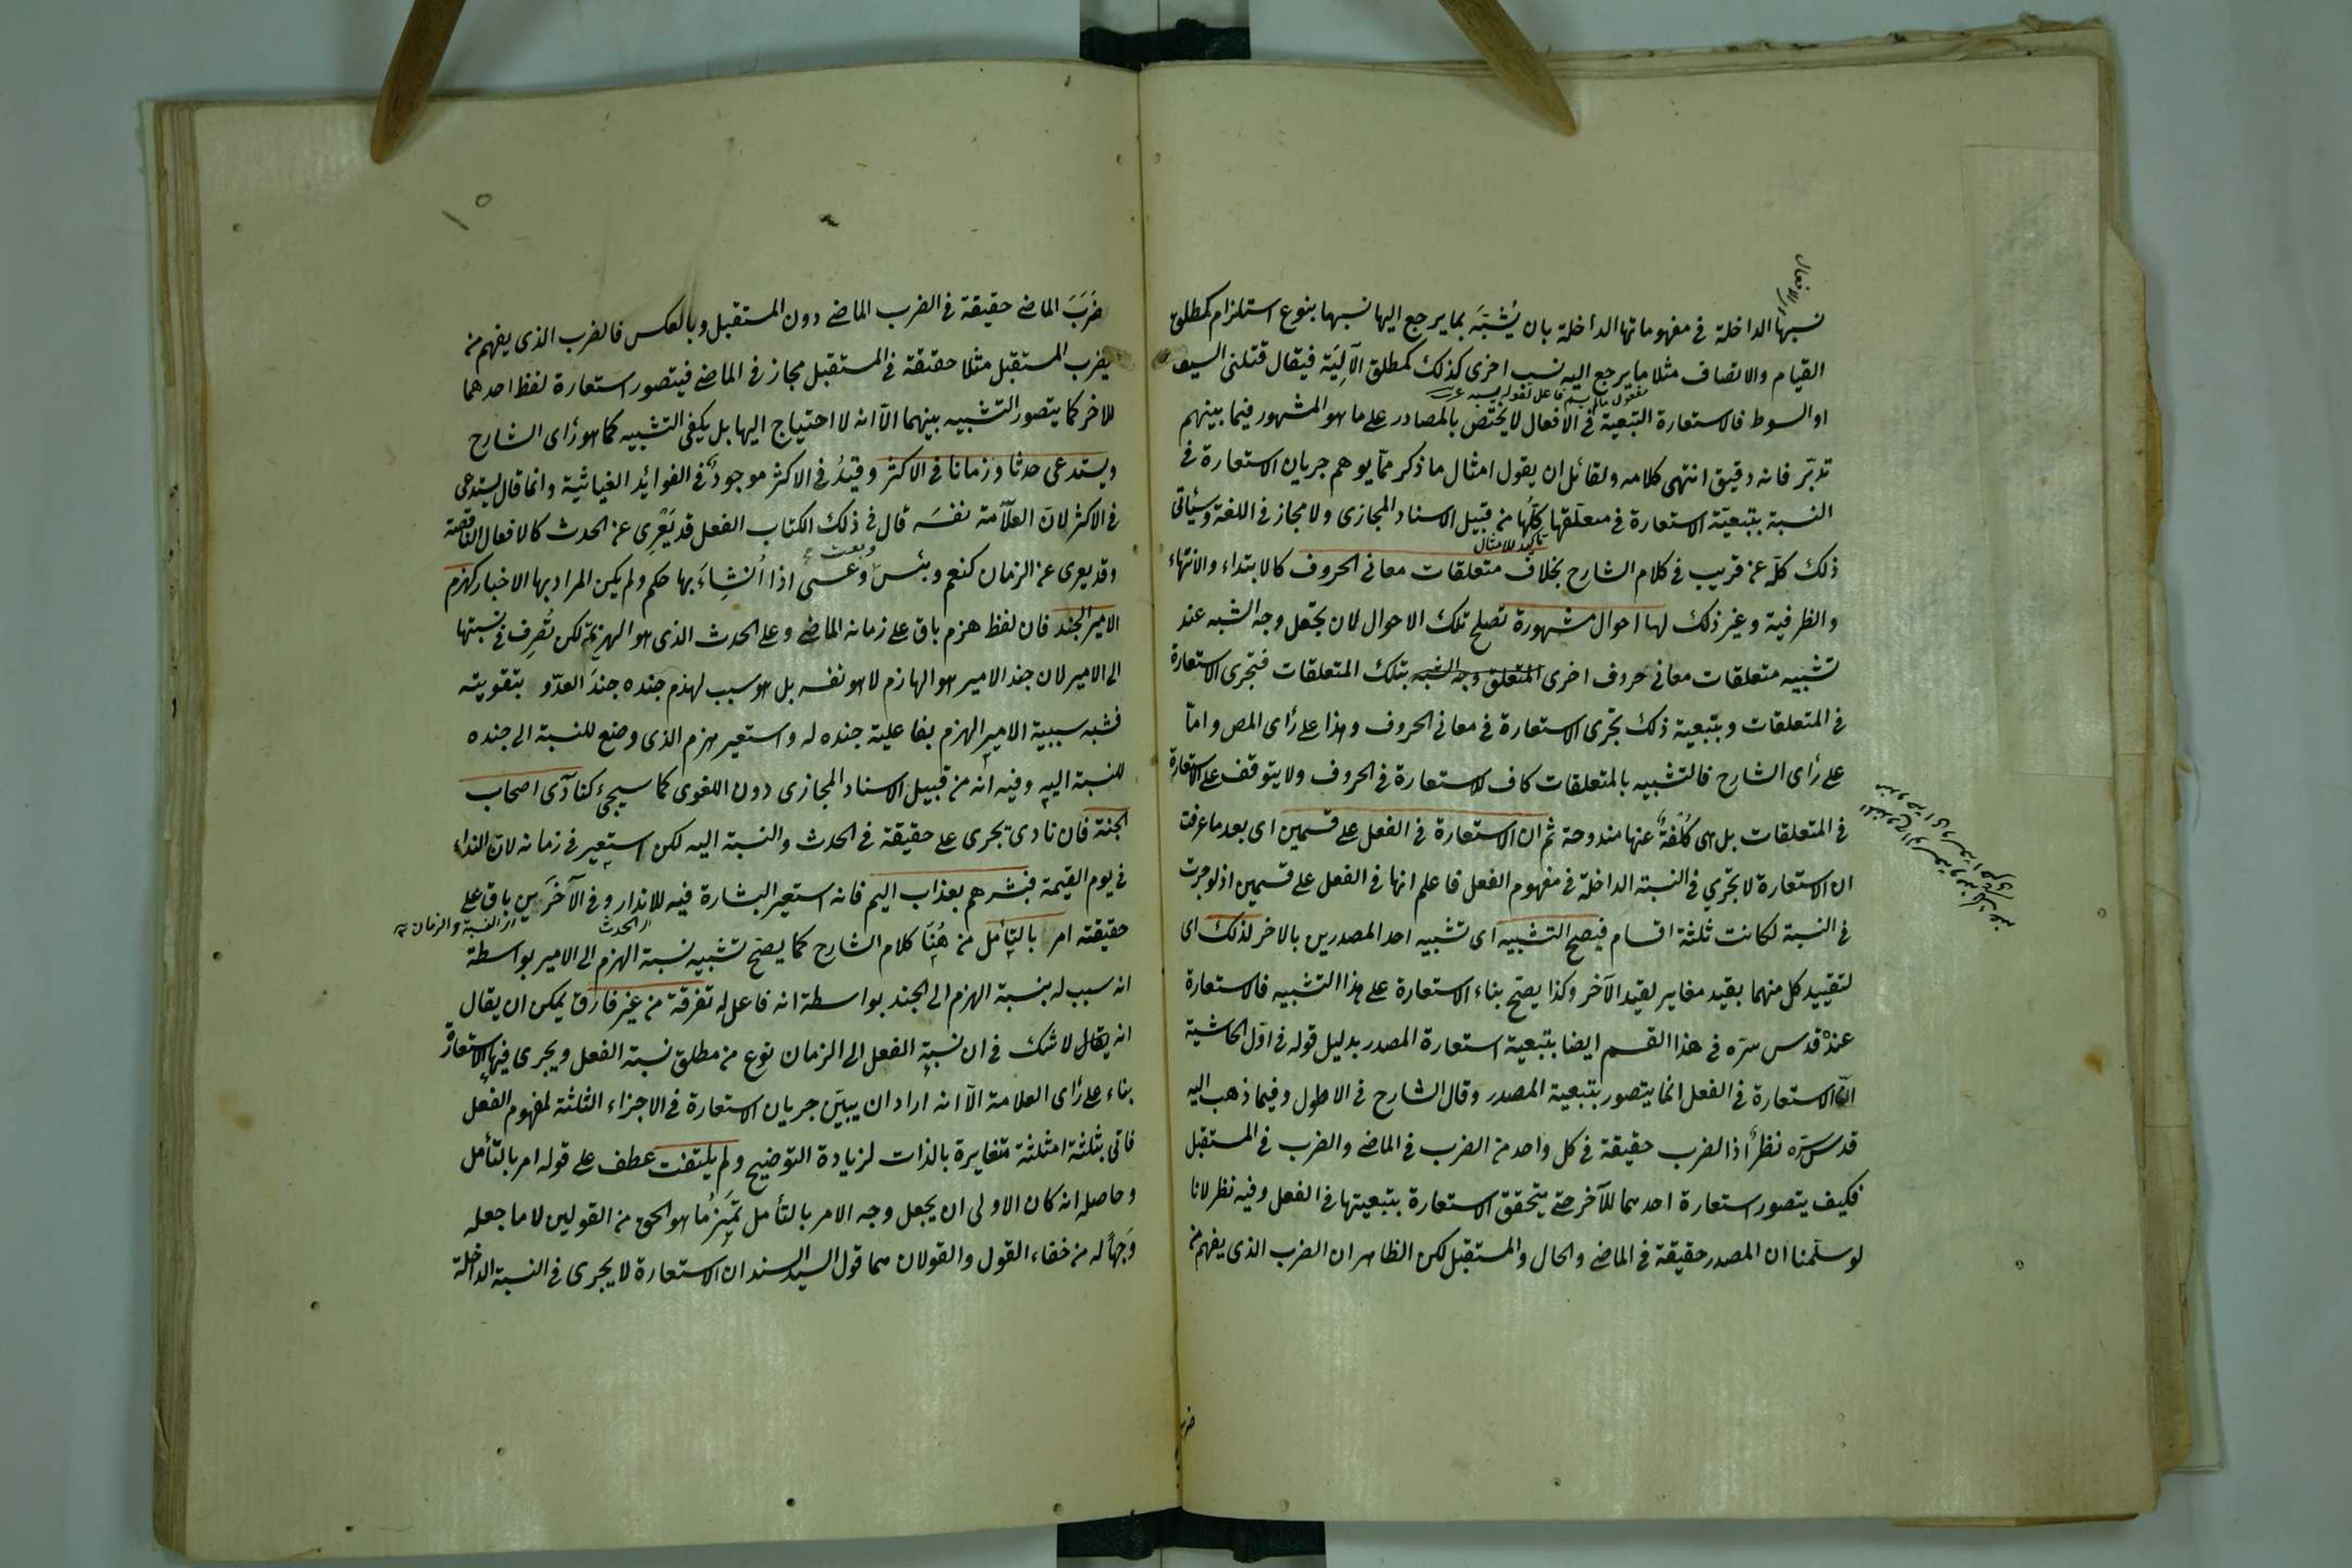 نسبها الداخلة في مفهوماتها الداخلة بان يُشبَّه بما يرجع اليها نسبها بنوع استلزام كمطلق
القيام والاتصاف مثلا ما يرجع اليه نسب اخرى كذلك كمطلق الآلِيَة فيقال قتلنى السيف
او السوط فالاستعارة التبعية في الافعال لا يختص بالمصادر على ما هو المشهور فيما بينهم
تدبّر فانه دقيق انتهى كلامه ولقائل ان يقول امثال ما ذكر ممّا يوهم جريان الاستعارة في
النسبة بتبعيّة الاستعارة في متعلّقها كلّها من قبيل الاسناد المجازى ولا مجاز في اللغة وسيأتى
تأكيد للامثال
ذلك كلّه عن قريب في كلام الشارح بخلاف متعلقات معاني الحروف كالابتداء والانتهاء
والظرفية وغير ذلك لها احوال مشهورة تصلح تلك الاحوال لان يجعل وجه الشبه عند
تشبيه متعلقات معاني حروف اخرى المتعلق وجه الشبه بتلك المتعلقات فتجرى الاستعارة
في المتعلقات وبتبعية ذلك تجرى الاستعارة في معاني الحروف وهذا على رأى المص وامّا
على رأى الشارح فالتشبيه بالمتعلقات كاف للاستعارة في الحروف ولا يتوقف على الاستعارة
في المتعلقات بل هى كُلفةٌ عنها مندوحة ثم ان الاستعارة في الفعل على قسمين اى بعد ما عرفت
ان الاستعارة لا تجري في النسبة الداخلة في مفهوم الفعل فاعلم انها في الفعل على قسمين اذ لو جرت
في النسبة لكانت ثلثة اقسام فيصح التشبيه اى تشبيه احد المصدرين بالاخر لذلك اى
لتقييد كل منهما بقيد مغاير لقيد الآخر وكذا يصح بناء الاستعارة على هذا التشبيه فالاستعارة
عنده قدس سره في هذا القسم ايضا بتبعية استعارة المصدر بدليل قوله في اوّل الحاشية
انّ الاستعارة في الفعل انما يتصور بتبعية المصدر وقال الشارح في الاطول وفيما ذهب اليه
قدس سره نظرٌ اذ الضرب حقيقة في كل واحد من الضرب في الماضي والضرب في المستقبل
فكيف يتصور استعارة احدهما للآخر حتى يتحقق الاستعارة بتبعيتها في الفعل وفيه نظر لانا
لو سلّمنا ان المصدر حقيقة في الماضي والحال والمستقبل لكن الظاهر ان الضرب الذى يفهم من
ضرب
١٥
ضَرَبَ الماضي حقيقة في الضرب الماضي دون المستقبل وبالعكس فالضرب الذى يفهم من
يضرب المستقبل مثلا حقيقة في المستقبل مجاز في الماضي فيتصور استعارة لفظ احدهما
للاخر كما يتصور التشبيه بينهما الّا انه لا احتياج اليها بل يكفى التشبيه كما هو رأى الشارح
ويستدعى حدثا وزمانا في الاكثر وقيدُ في الاكثر موجودٌ في الفوائد الغياثية وانما قال يستدعى
في الاكثر لانّ العلّامة نفسَه قال في ذلك الكتاب الفعل قد يَعْرِى عن الحدث كالافعال الناقصة
وبعت
وقد يعرى عن الزمان كنعم وبئس وعسى اذا اُنشِاءَ بها حكم ولم يكن المراد بها الاخبار كهزم
الامير الجند فان لفظ هزم باق على زمانه الماضي وعلى الحدث الذى هو الهزيمة لكن تُصرِف في نسبتها
الى الامير لان جند الامير هو الهازم لا هو نفسه بل هو سبب لهزم جنده جندَ العدّو بتقويته
فشبه سببية الامير الهزم بفاعلية جنده له واستعير هزم الذى وضع للنسبة الى جنده
للنسبة اليه وفيه انه من قبيل الاسناد المجازى دون اللغوى كما سيجئ كنادى اصحاب
الجنة فان نادى تجرى على حقيقة في الحدث والنسبة اليه لكن استعير في زمانه لان النداء
في يوم القيمة فبشرهم بعذاب اليم فانه استعير البشارة فيه للانذار وفي الآخَرَين باق على
اى الحدث
اى النسبة والزمان
حقيقته امر بالتأمل من هُنَا كلام الشارح كما يصح تشبيه نسبة الهزم الى الامير بواسطة
انه سبب له بنسبة الهزم الى الجند بواسطة انه فاعل له تفرقة من غير فارق يمكن ان يقال
انه يقال لا شك في ان نسبة الفعل الى الزمان نوع من مطلق نسبة الفعل ويجرى فيها الاستعارة
بناء على رأى العلامة الّا انه اراد ان يبيّن جريان الاستعارة في الاجزاء الثلثة لمفهوم الفعل
فاتى بثلثة امثلثة متغايرة بالذات لزيادة التوضيح ولم يلتفت عطف على قوله امر بالتأمل
وحاصله انه كان الاولى ان يجعل وجه الامر بالتأمل تميزُ ما هو الحق من القولين لا ما جعله
وَجهاً له من خفاء القول والقولان هما قول السيد السند ان الاستعارة لا يجرى في النسبة الداخلة